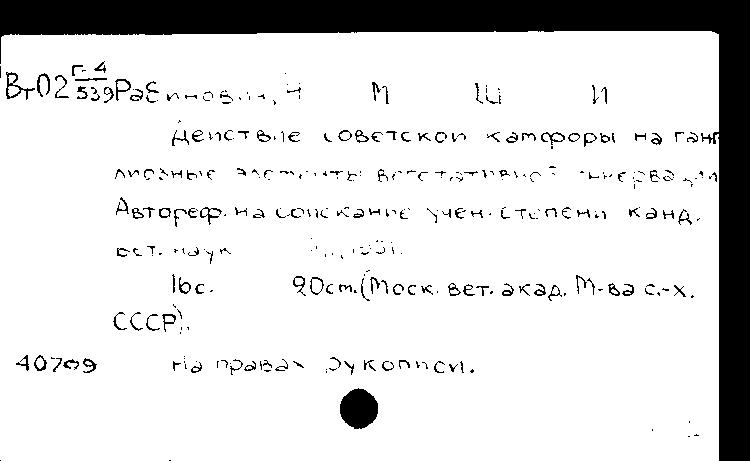 Вт02 Г-4/539 Рабинович, Ч М Ш И
Действие советской камфоры на ганг
лиозные элементы вегетативной иннервации
Автореф. на соискание учен. степени канд.
вет. наук
16с. 20см. (Моск. вет. акад. М-ва с.-х.
СССР).
40709 На правах рукописи.